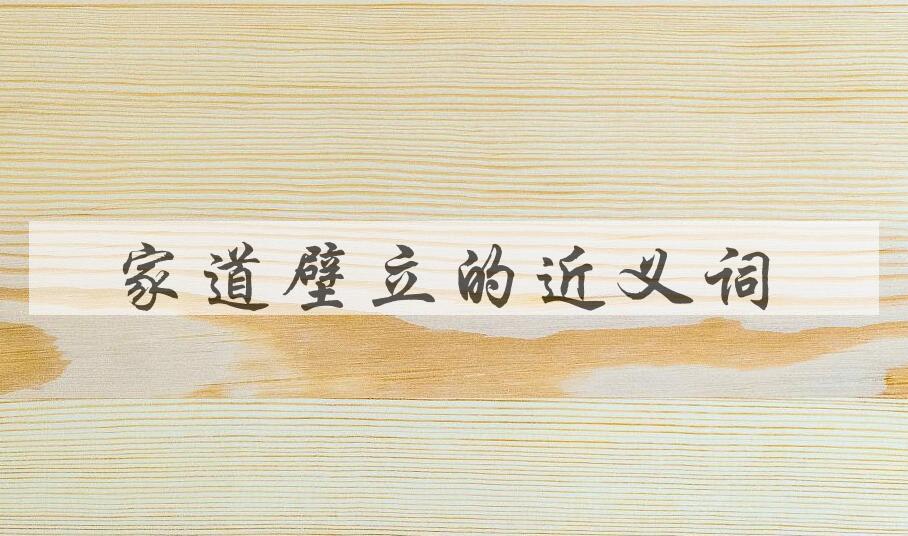 家道壁立的近义词